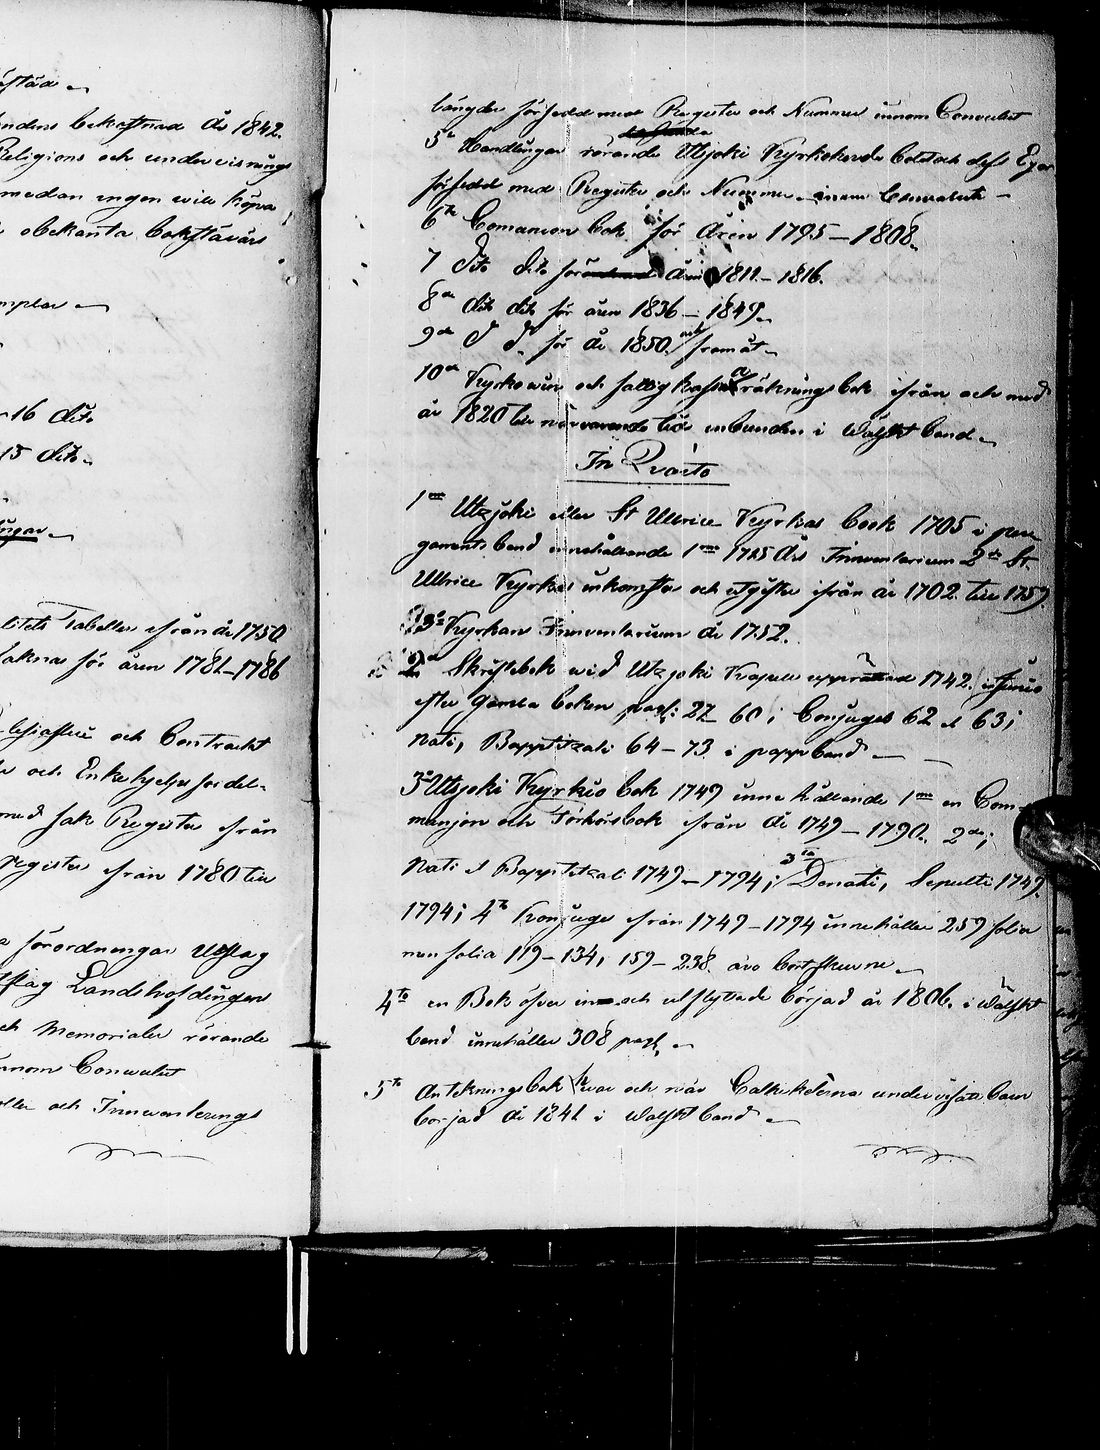 bekostnad År 1842.
Religions och undervisnings
medan ingen will köpa
obekanta bokstäver
16 dito
15 dito
Tabeller ifrån år 1750
för åren 1781–1786
och Contract
och Enkehjelps fördel-
med sak Register ifrån
Register ifrån 1780 till
förordningar Utslag
Landshöfdingens
och Memorialer rörande
innom Convolut
och Innventerings
längder försedd med Register och Nummer innom Convolut
5te Handlingar rörande Utsjoki Kyrkoherde Bol och dess Egor
försedd med Register och Nummer innom Convolut –
6te Comunion bok för åren 1795–1808.
7 dito dito för åren 1811–1816.
8de dito dito för åren 1836–1849.
9de d d. för år 1850 och framåt
10de Kyrkowin och fattigkassa räknings bok ifrån och med
år 1820 till närvarande tid inbunden i Wälskt band
In Qvarto
1mo Utzjoki eller St Ullrice Kyrkas book 1705 i per
gaments band innehållande 1mo 1725 års Innventarium 2do St
Ullrice Kyrkas inkomster och utgifter ifrån år 1702 till 1759
3o Kyrkans Innventarium år 1752.
2do Skriftebok wid Utzjoki Kapell upprättad 1742 i Junio
efter gamla boken pag: 27–60; Conjuges 62 et 63;
Nati, Bapptizati 64–73 i pappband
3o Utsjoki Kyrkio bok 1749 innehållande 1mo en Com-
munjon och Förhörsbok ifrån år 1749–1790. 2do;
Nati et Bapptizati 1749–1794; 3tio Denati, Sepulti 1749
1794; 4to Konjuges ifrån 1749–1794 innehåller 259 folier
men folia 119–134, 159–238 äro bortskurne
4to en Bok öfver in och utflyttade börjad år 1806. i Wälskt
band innehåller 308 pag.
5to Anteknings bok hvar och när Catheketerna undervisat barn
börjad år 1841 i Wälskt band